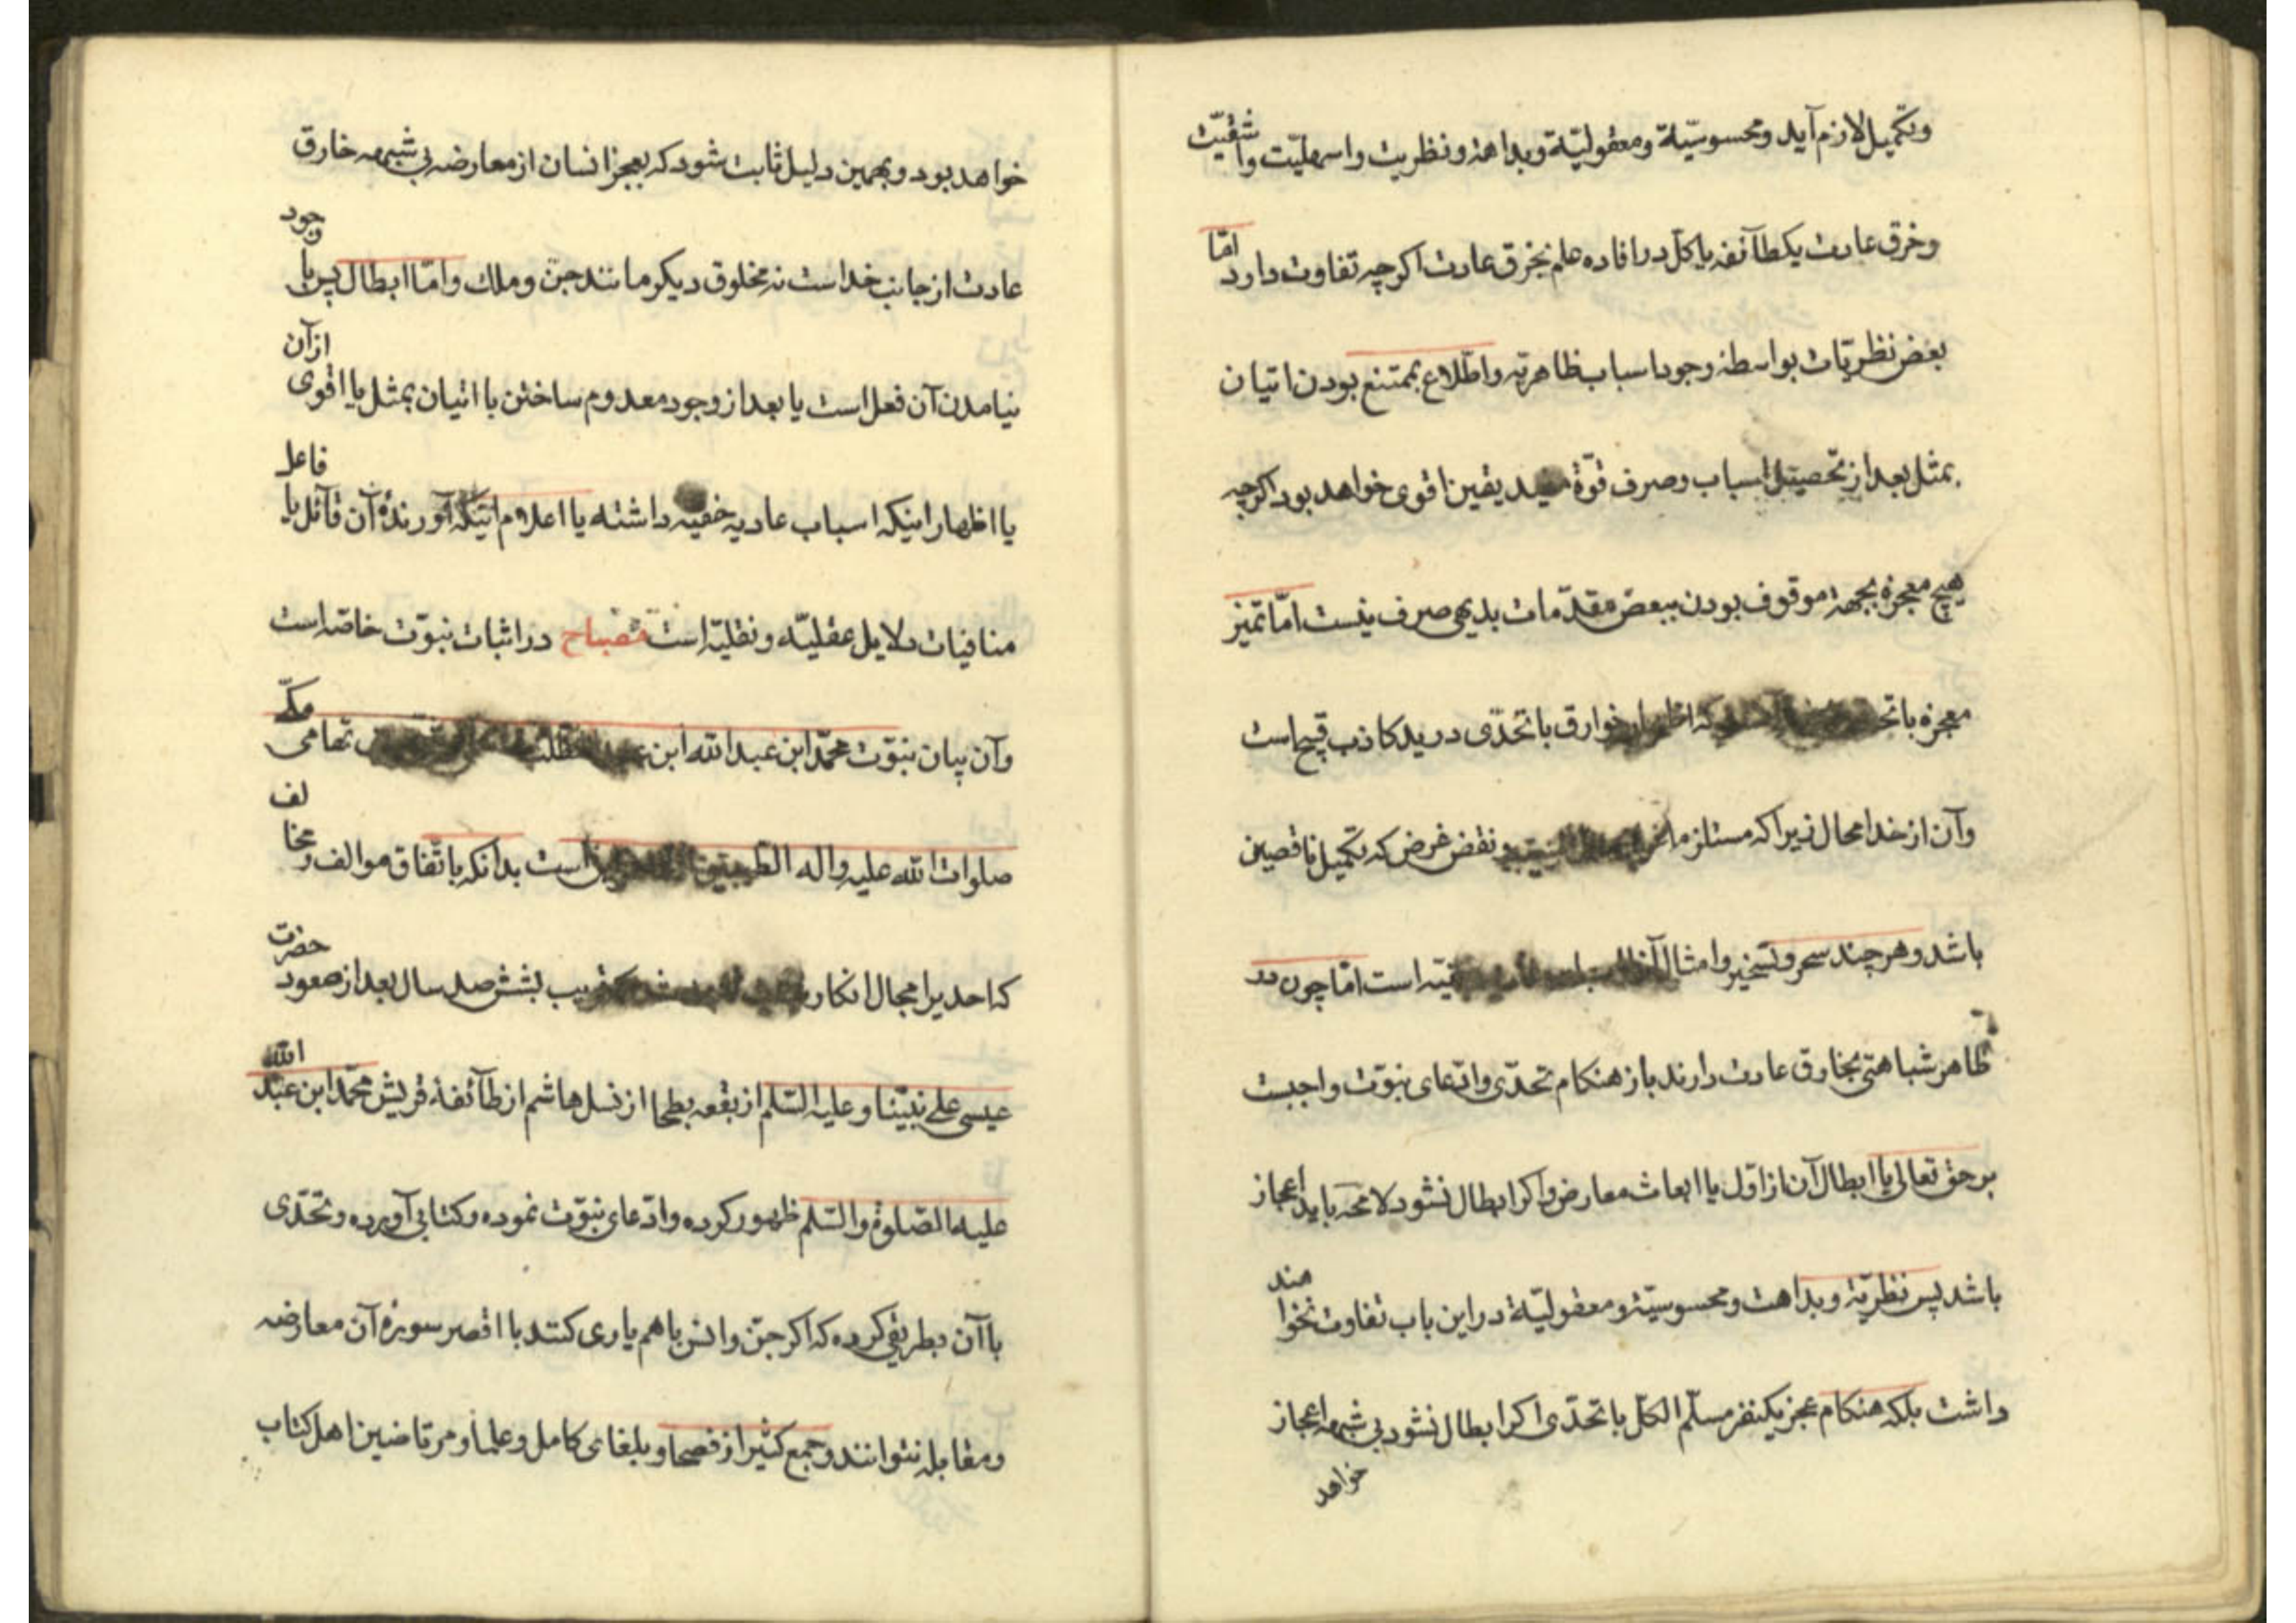 وتکمیل لازم آید ومحسوسیّة ومعقولیّة وبداهة ونظریت واسهلیّت واشقیّت
وخرق عادت یکطآئفه یا کلّ در افاده علم بخرق عادت اکرچه تفاوت دارد امّا
بعض نظریّات بواسطه وجود اسباب ظاهریّه واطّلاع بممتنع بودن اتیان
بمثل بعد از تحصیل اسباب وصرف قوّة یقین اقوی خواهد بود اکرچه
هیچ معجزه بجهة موقوف بودن ببعض مقدّمات بدیهی صرف نیست امّا تمیز
معجزه با که اظهار خوارق با تحدّی در ید کاذب قبیح است
وآن از خدا محال زیرا که مستلزم ونقض غرض که تکمیل ناقصین
باشد وهرچند سحر وتسخیر وامثال است امّا چون در
ظاهر شباهتی بخارق عادت دارند باز هنکام تحدّی وادّعای نبوّت واجبست
بر حق تعالی یا ابطال آن از اوّل یا ابعاث معارض واکر ابطال نشود لا محه باید اعجاز
باشد پس نظریّة وبداهت ومحسوسیّة ومعقولیّة در این باب تفاوت نخواهند
داشت بلکه هنکام عجز یکنفر مسلّم الکلّ با تحدّی اکر ابطال نشود بی شبهه اعجاز
خواهد
خواهد بود وبهمین دلیل ثابت شود که بعجز انسان از معارضه بی شبهه خارق
عادت از جانب خداست نه مخلوق دیکر مانند جنّ وملك وامّا ابطال پس یا بوجود
نیامدن آن فعل است یا بعد از وجود معدوم ساختن یا اتیان بمثل یا اقوی از آن
یا اظهار اینکه اسباب عادیه خفیه داشته یا اعلام اینکه آورندهٔ آن قآئل یا فاعل
منافیات دلایل عقلیّه ونقلیّه است مصباح در اثبات نبوّت خاصّه است
وآن بیان نبوّت محمّد ابن عبد الله ابن تهامی مکّی
صلوات الله علیه واله است بدانکه باتّفاق موالف ومخالف
که احدیرا مجال انکار بششصد سال بعد از صعود حضرت
عیسی علی نبیّنا وعلیه السّلم از بقعه بطحا از نسل هاشم از طآئفهٔ قریش محمّد ابن عبد الله
علیه الصّلوة والسّلم ظهور کرده وادّعای نبوّت نموده وکتابی آورده وتحدّی
با آن بطریقی کرده که اکر جنّ وانس با هم یاری کنند با اقصر سورهٔ آن معارضه
ومقابله نتوانند وجمع کثیر از فصحا وبلغای کامل وعلما ومرتاضین اهل کتاب